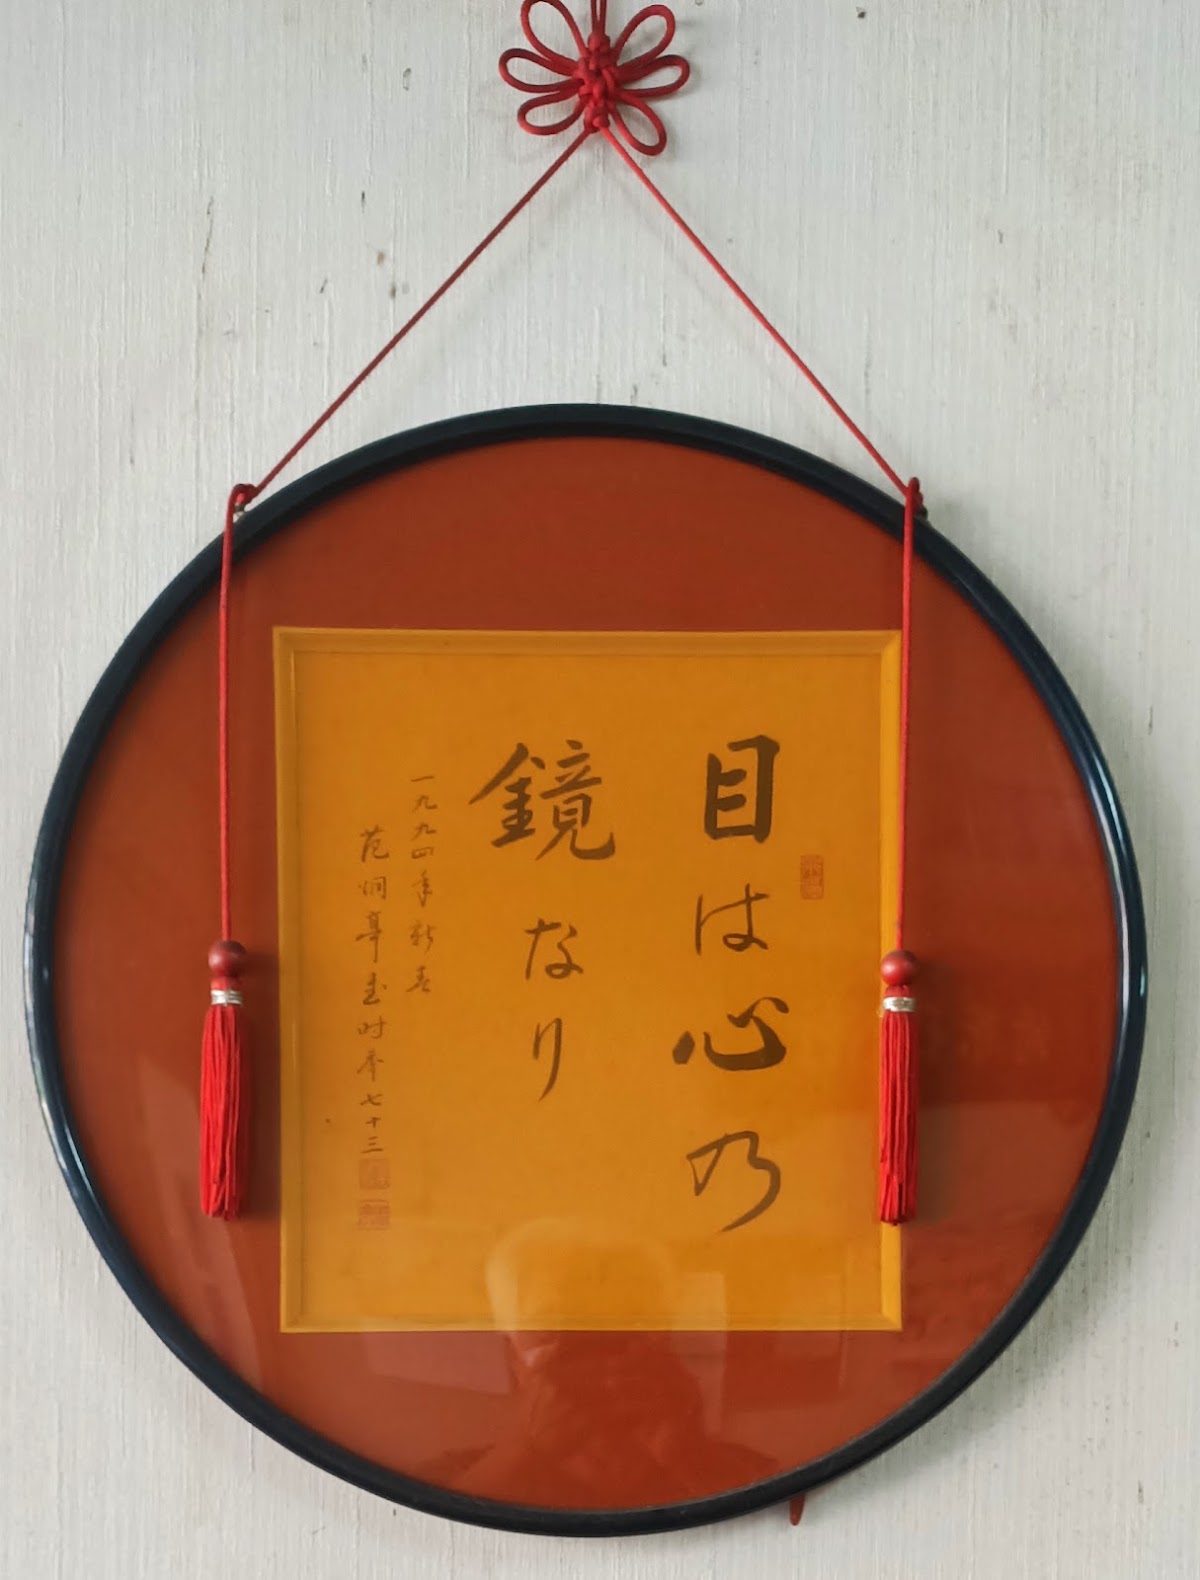 目は心乃
鏡なり
一九九四年新春
范炯亭書时年七十三